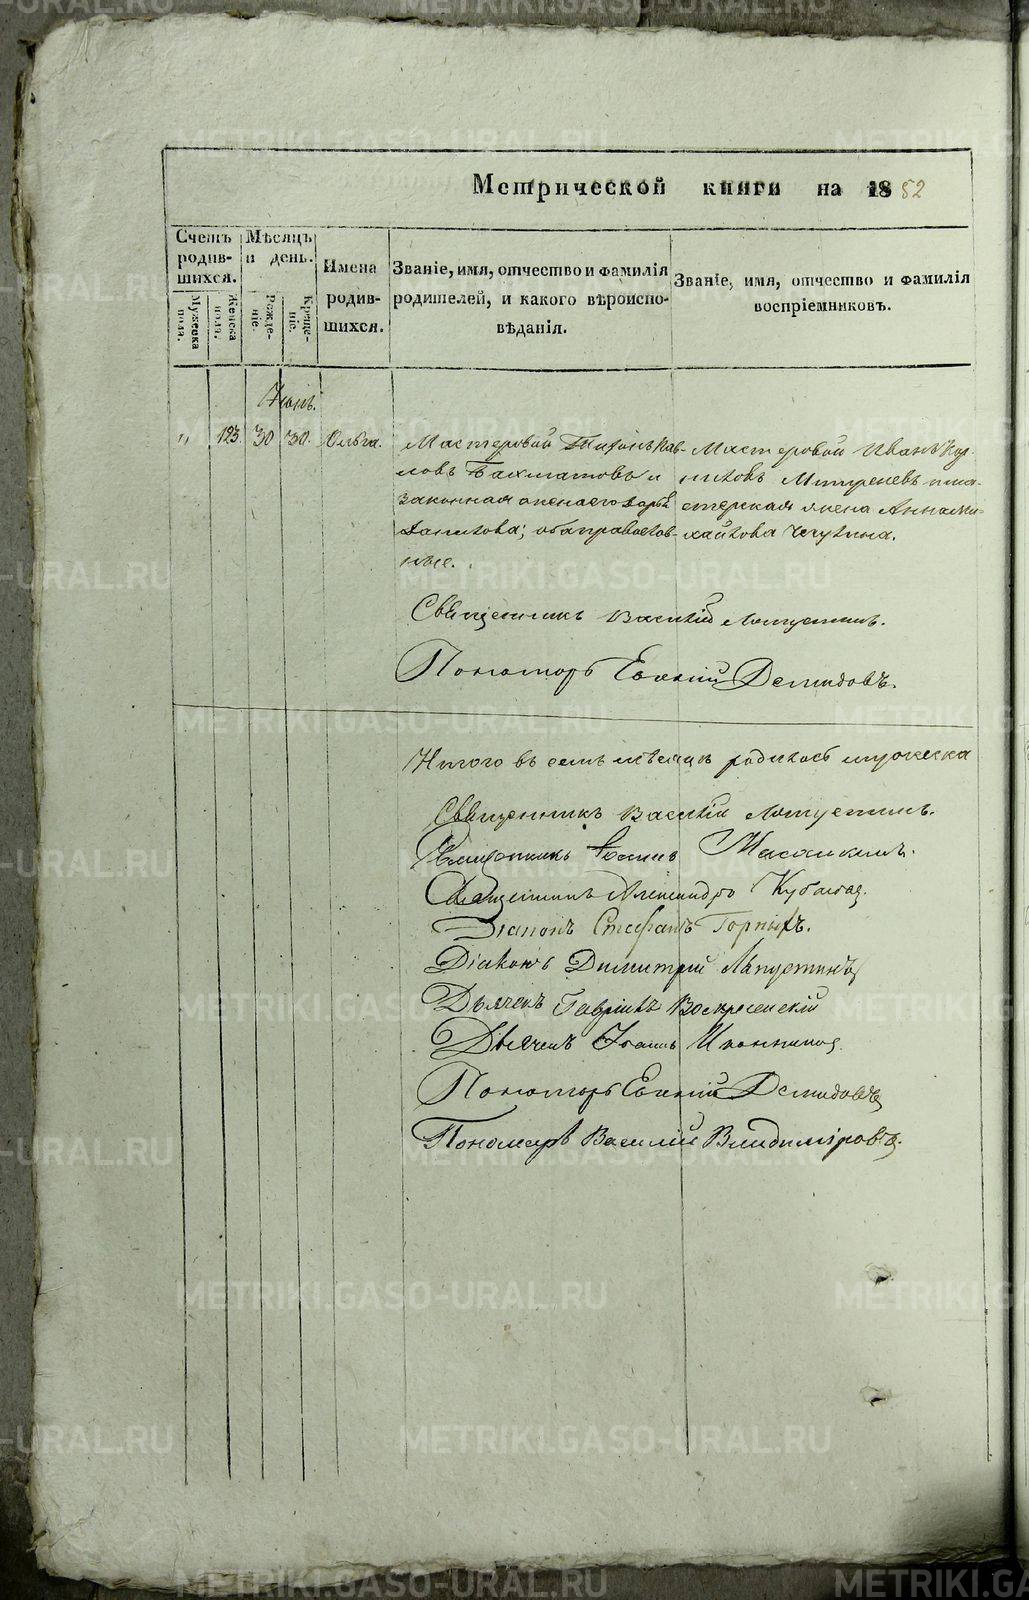 Метрической книги на 1852
Счетъ родив-шихся.
Мужеска пола.
Женска пола.
Мѣсяцъ и день.
Рожде-ніе.
Креще-ніе.
Имена родив-шихся.
Званіе, имя, отчество и фамилія
родителей, и какого вѣроиспо-
вѣданія.
Званіе, имя, отчество и фамилія
воспріемниковъ.
Іюнь.
" 123. 30 30. Ольга.
Мастеровой Тихонъ Пав-
ловъ Бахматовъ и
законная жена его Дарья
Данилова; оба православ-
ные.
Мастеровой Иванъ
Митреневъ и ма-
стерская жена Анна Ми-
хайлова Чечулина.
Священникъ Василій Лапустинъ.
Пономарь Евгеній Демидовъ.
Итого въ семъ мѣсяцѣ родилось мужеска
Священникъ Василій Лапустинъ.
Священникъ Іоаннъ
Священникъ Александръ
Діаконъ Стефанъ Горныхъ.
Діаконъ Димитрій Лапустинъ
Дьячекъ Гавріилъ Воскресенскій
Дьячекъ Іоаннъ Иконниковъ
Пономарь Евгеній Демидовъ
Пономарь Василій Владиміровъ.
METRIKI.GASO-URAL.RU